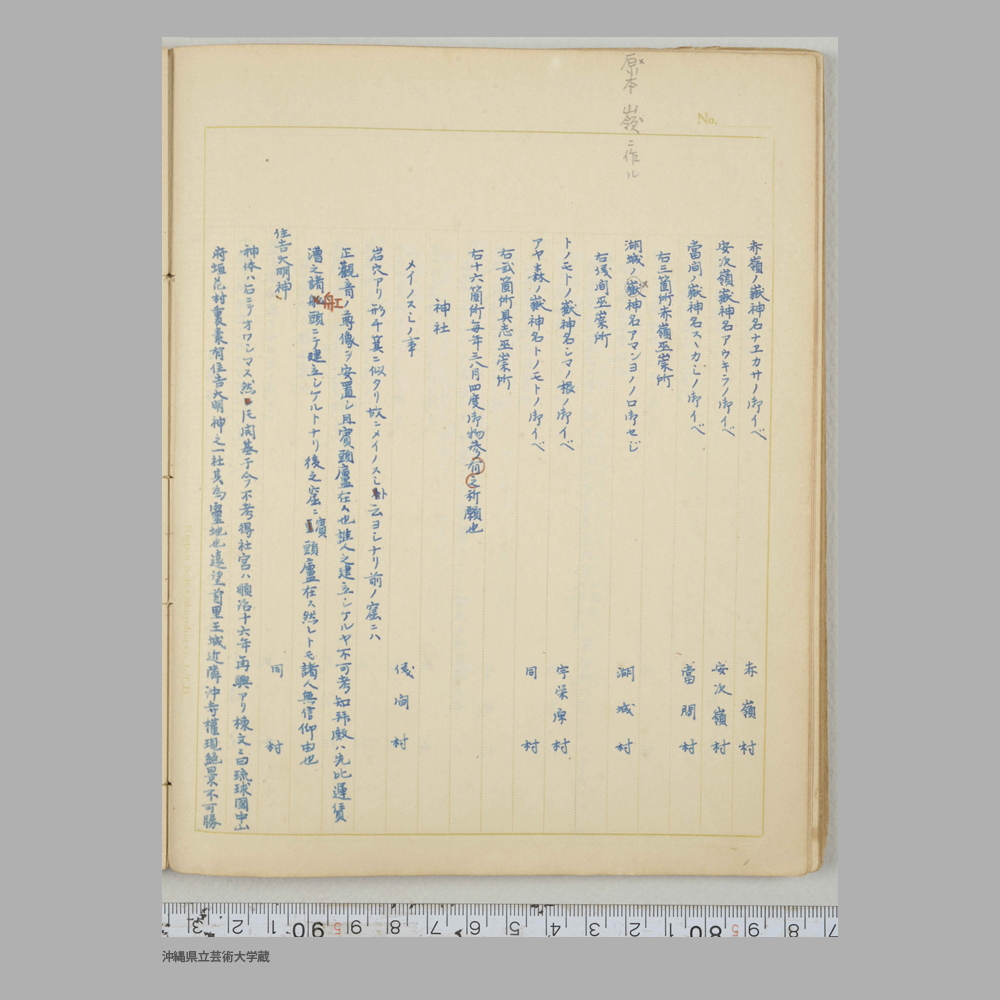 原本 嶺ニ作ル
No.
赤嶺ノ嶽神名ナヱカサノ御イベ 赤嶺村
安次嶺嶽神名アウキラノ御イベ 安次嶺村
當間ノ嶽神名スヽカシノ御イベ 當間村
右三箇所赤嶺巫崇所
湖城ノ嶽神名アマンヨノノロ御セジ 湖城村
右儀間巫崇所
トノモトノ嶽神名シマノ根ノ御イベ 宇栄原村
アヤ森ノ嶽神名トノモトノ御イベ 同村
右貳箇所具志巫崇所
右十六箇所毎年三八月四度御物参有之祈願也
神社
メイノスシノ事 儀間村
岩穴アリ形千箕ニ似タリ故ニメイノスシト云ヨシナリ前ノ窟ニハ
正觀音ノ尊像ヲ安置シ且賓頭盧在ス也誰人之建立シケルヤ不可考知拜殿ハ先比運賃
漕之諸船頭ニテ建立シケルトナリ後之窟ニ賓頭盧在ス然レトモ諸人無信仰由也
住吉大明神 同村
神体ハ石ニテオワシマス然ニ開基于今不考得社宮ハ順治十六年再興アリ棟文ニ曰琉球國中山
府垣花村裏裏有住吉大明神之一社其為靈地也遠望首里王城近隣沖寺權現絶景不可勝
3 2 1 90 9 8 7 6 5 4 3 2 1 80 9 8 7
沖縄県立芸術大学蔵